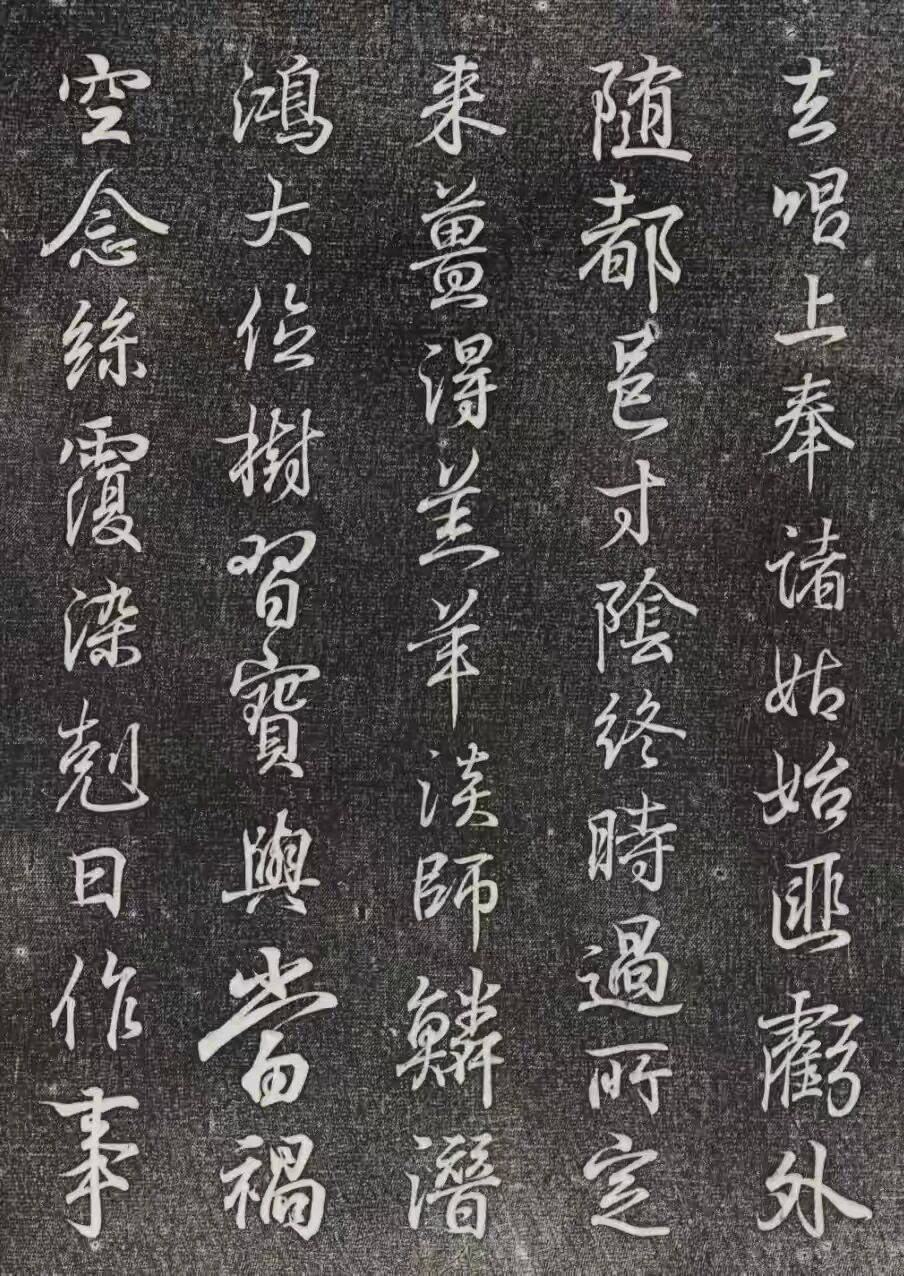 去唱上奉諸姑始匪虧外
随都邑寸陰終時過所定
来薑得羔羊淡師鱗潛
鴻大位樹習寶與當禍
空念絲覆染剋日作事